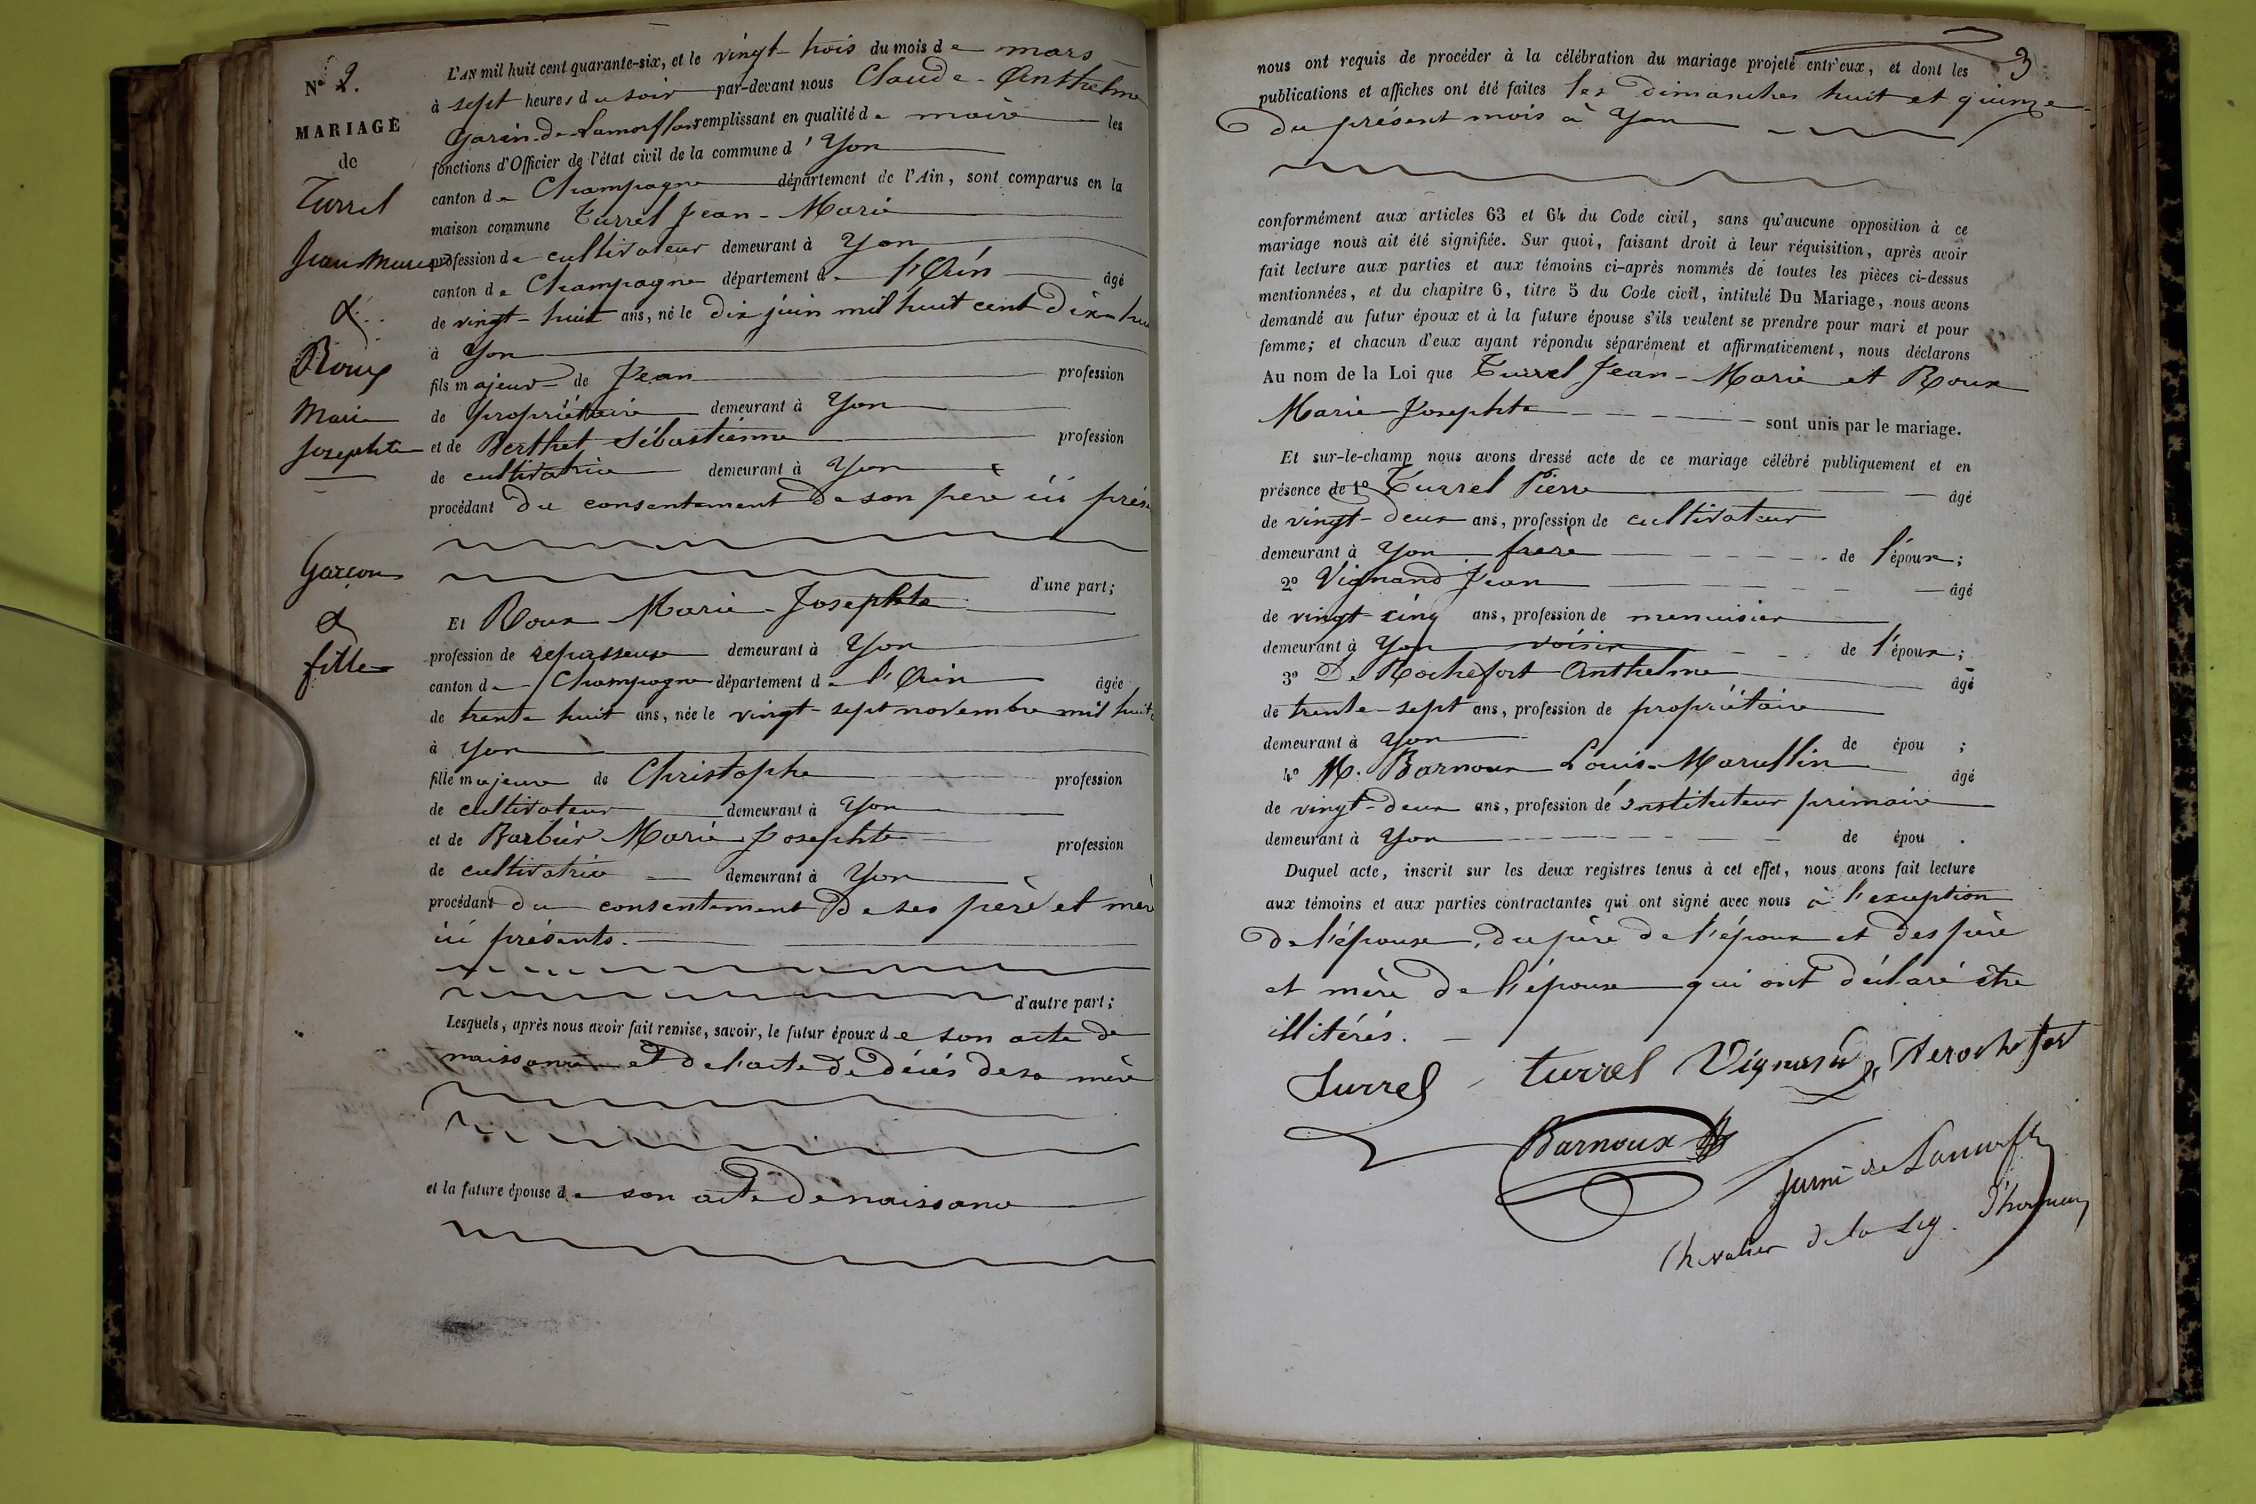 N° 2.
MARIAGE
de
Turrel
Jean-Marie
&
Roux
Marie
Josephte
Garçon
&
fille
L'AN mil huit cent quarante-six, et le vingt-trois du mois de mars
à sept heures du soir par-devant nous Claude-Anthelme
Garin de Lamorflan remplissant en qualité de maire les
fonctions d'Officier de l'état civil de la commune d'Yon
canton de Champagne département de l'Ain, sont comparus en la
maison commune Turrel Jean-Marie
profession de cultivateur demeurant à Yon
canton de Champagne département de l'Ain âgé
de vingt-huit ans, né le dix juin mil huit cent dix-hu
à Yon
fils majeur de Jean profession
de propriétaire demeurant à Yon
et de Berthet Sébastienne profession
de cultivatrice demeurant à Yon
procédant du consentement de son père ici prése
d'une part;
Et Roux Marie-Josephte
profession de repasseuse demeurant à Yon
canton de Champagne département de l'Ain âgée
de trente huit ans, née le vingt-sept novembre mil huit c
à Yon
fille majeure de Christophe profession
de cultivateur demeurant à Yon
et de Barbier Marie Josephte profession
de cultivatrice demeurant à Yon
procédant du consentement de ses père et mère
ici présents.
d'autre part;
Lesquels, après nous avoir fait remise, savoir, le futur époux de son acte de
naissance et de l'acte de décès de sa mère
et la future épouse de son acte de naissance
3
nous ont requis de procéder à la célébration du mariage projeté entr'eux, et dont les
publications et affiches ont été faites les dimanches huit et quinze
du présent mois à Yon
conformément aux articles 63 et 64 du Code civil, sans qu'aucune opposition à ce
mariage nous ait été signifiée. Sur quoi, faisant droit à leur réquisition, après avoir
fait lecture aux parties et aux témoins ci-après nommés de toutes les pièces ci-dessus
mentionnées, et du chapitre 6, titre 5 du Code civil, intitulé Du Mariage, nous avons
demandé au futur époux et à la future épouse s'ils veulent se prendre pour mari et pour
femme; et chacun d'eux ayant répondu séparément et affirmativement, nous déclarons
Au nom de la Loi que Turrel Jean-Marie et Roux
Marie-Josephte sont unis par le mariage.
Et sur-le-champ nous avons dressé acte de ce mariage célébré publiquement et en
présence de 1° Turrel Pierre âgé
de vingt-deux ans, profession de cultivateur
demeurant à Yon frère de l'époux;
2° Vignand Jean âgé
de vingt-cinq ans, profession de menuisier
demeurant à Yon voisin de l'époux;
3° De Rochefort Anthelme âgé
de trente-sept ans, profession de propriétaire
demeurant à Yon de épou ;
4° M. Barnoux Louis-Marcellin âgé
de vingt-deux ans, profession de instituteur primaire
demeurant à Yon de épou .
Duquel acte, inscrit sur les deux registres tenus à cet effet, nous avons fait lecture
aux témoins et aux parties contractantes qui ont signé avec nous à l'exception
de l'épouse, du père de l'époux et des père
et mère de l'épouse qui ont déclaré être
illitérés.
Turrel turrel Vignand Derochefort
Barnoux
Garin de Lamorfl
Chevalier de la Lég. d'honneur